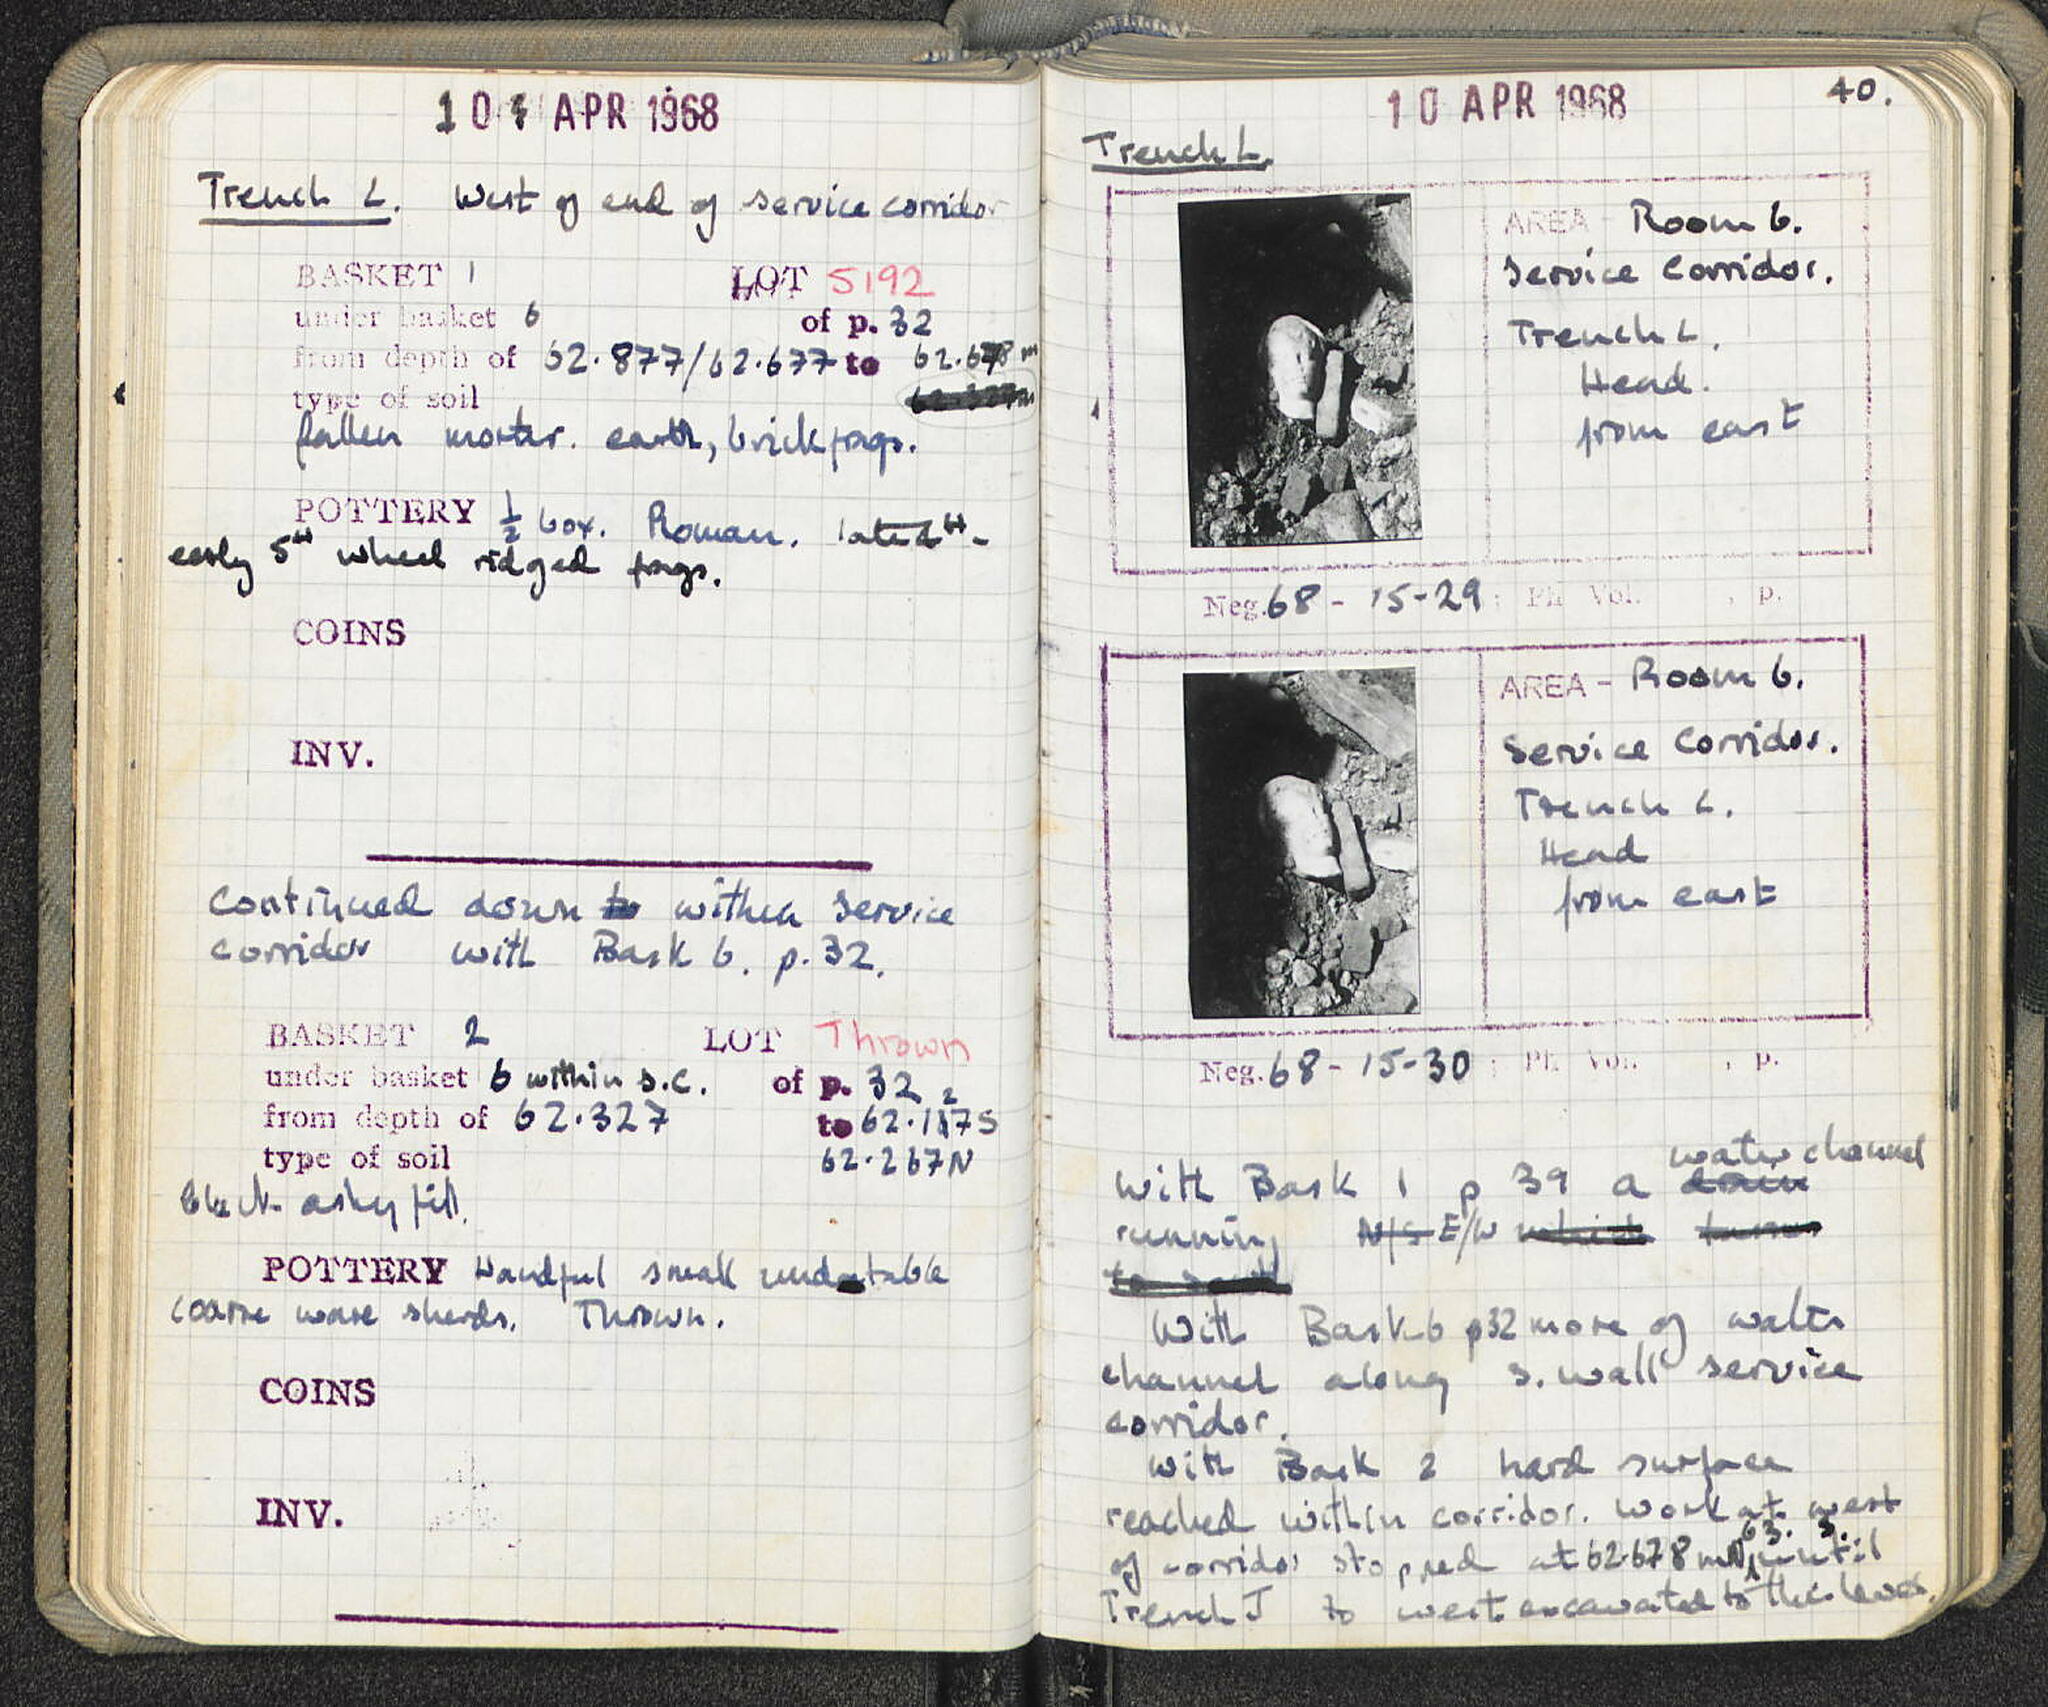 10 APR 1968
Trench L. West of end of service corridor
BASKET 1 LOT 5192
under basket 6 of p. 32
from depth of 62.877/62.677 to 62.678 m
type of soil
fallen mortar. earth, brick frags.
POTTERY ½ box. Roman. late 4th -
early 5th wheel ridged frags.
COINS
INV.
Continued down to within service
corridor with Bask 6. p. 32.
BASKET 2 LOT Thrown
under basket 6 within s.c. of p. 32
from depth of 62.327 to 62.127 S
type of soil 62.267 N
black ashy fill.
POTTERY Handful small undatable
coarse ware sherds. Thrown.
COINS
INV.
10 APR 1968 40.
Trench L.
AREA - Room 6.
Service Corridor.
Trench L.
Head.
from east
Neg. 68 - 15-29 ; Ph Vol. , p.
AREA - Room 6.
Service Corridor.
Trench L.
Head
from east
Neg. 68 - 15-30 ; Ph Vol. , p.
water channel
With Bask 1 p 39 a drain
running N/S E/W which turns
to south
With Bask 6 p32 more of water
channel along S. wall service
corridor.
With Bask 2 hard surface
reached within corridor. Work at west
of corridor stopped at 62.678 m until
Trench J to west excavated to this level.